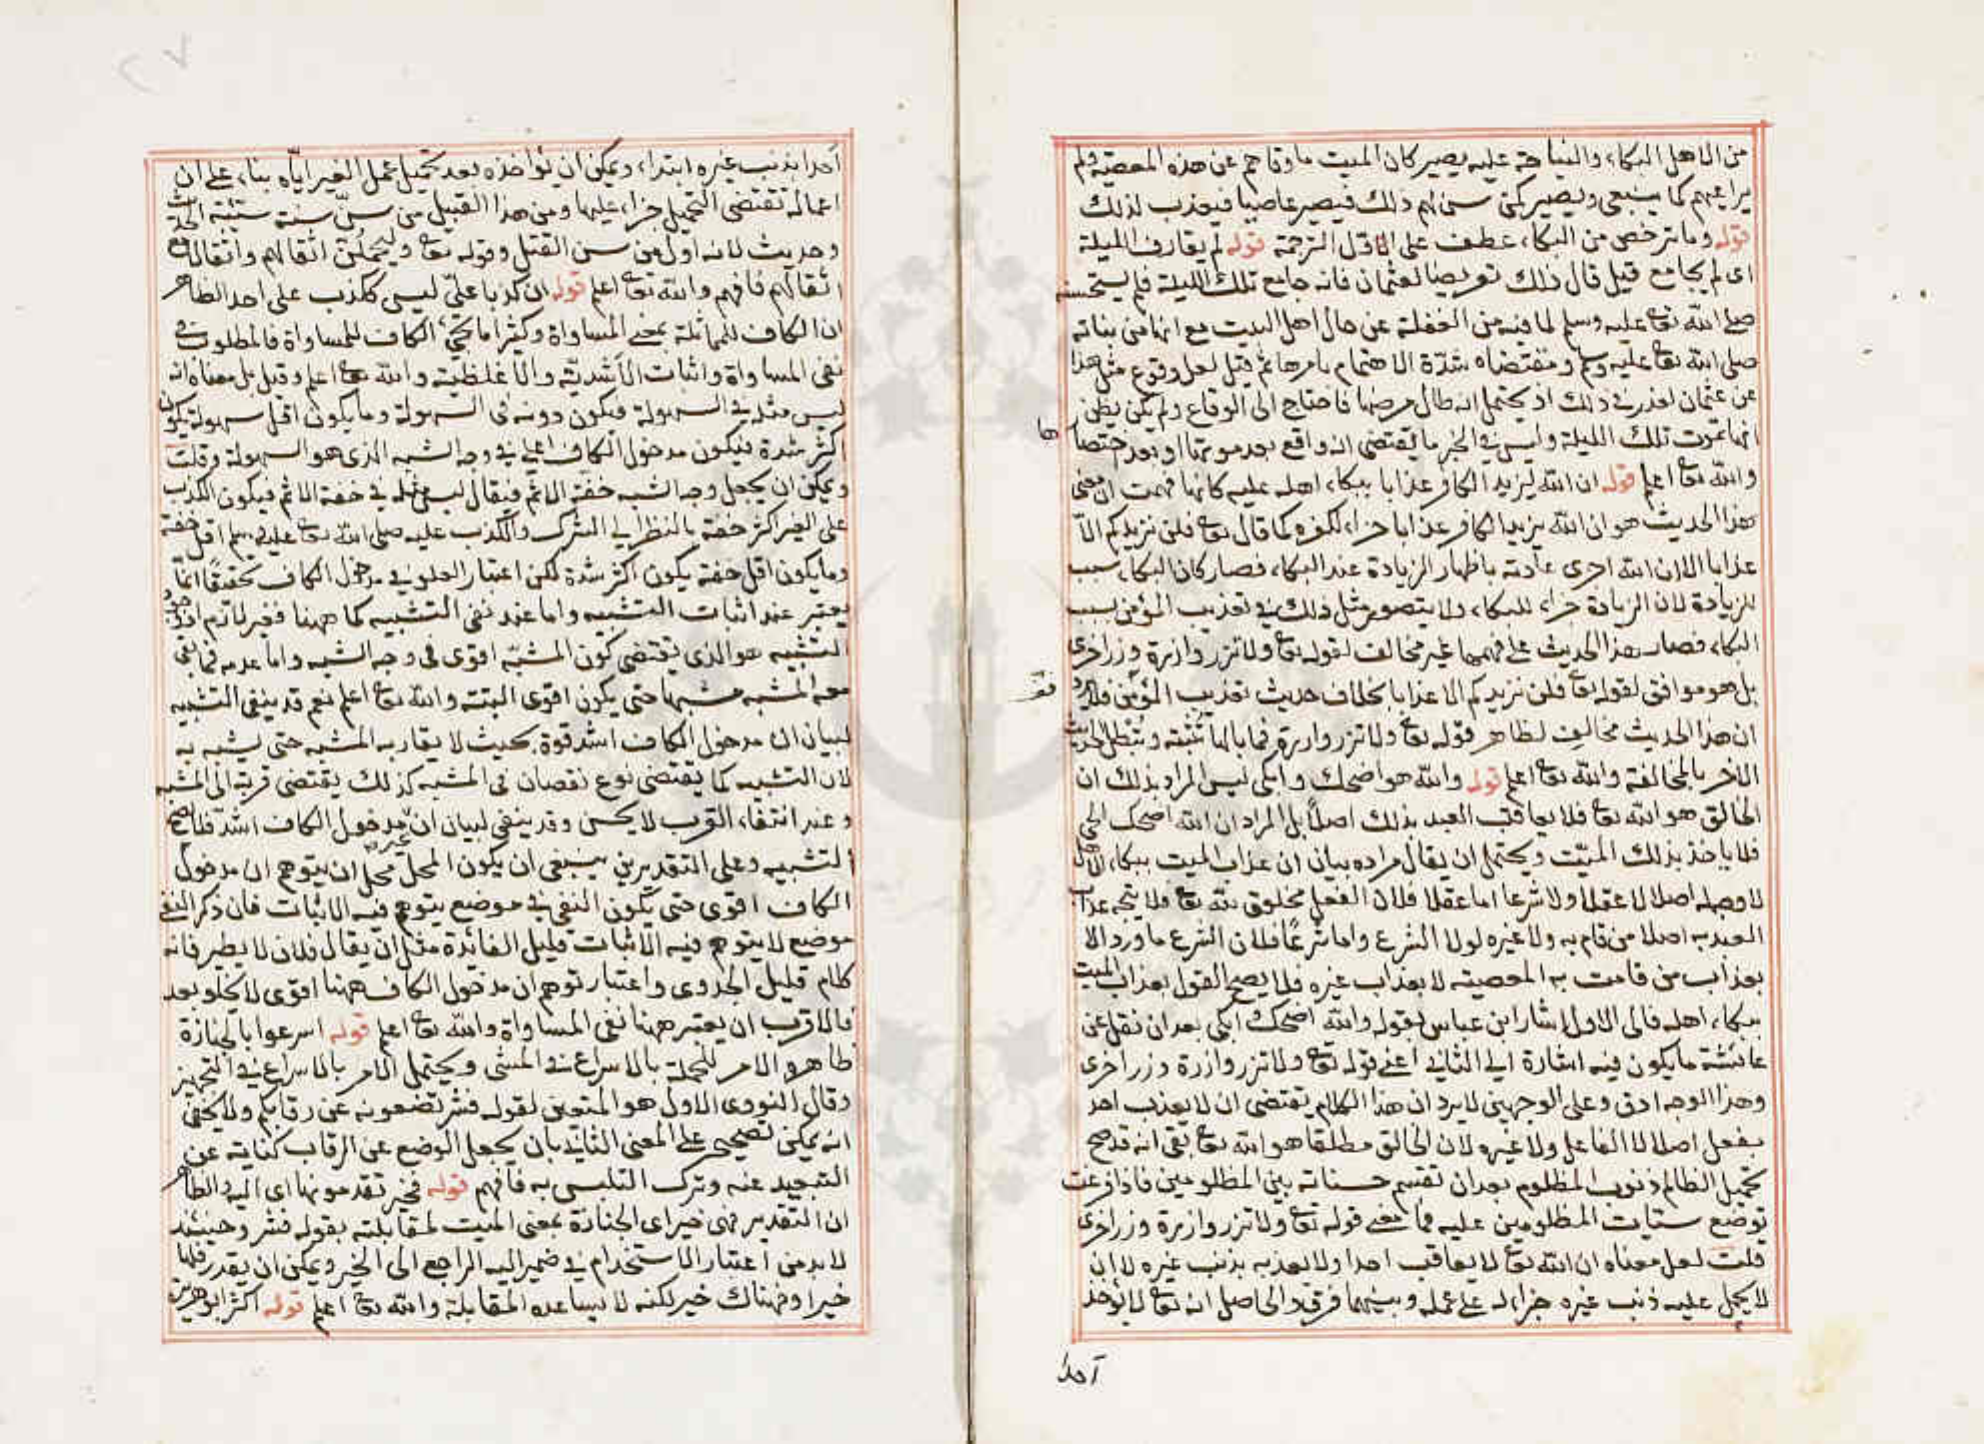 من الاهل البكاء والنياحة عليه يصير كان الميت ما وقاهم عن هذه المعصية ولم
يراعيهم كما ينبغي ويصير كمن سن لهم ذلك فيصير عاصيا فيعذب لذلك
قوله وما يرخص من البكاء عطف على اول الترجمة قوله لم يقارف الليلة
اى لم يجامع قيل قال ذلك تعريضا لعثمان فانه جامع تلك الليلة فلم يستحسنه
صلى الله تعا عليه وسلم لما فيه من الغفلة عن حال اهل البيت مع انها من بناته
صلى الله تعا عليه وسلم ومقتضاه شدة الاهتمام بامرها ثم قيل لعل وقوع مثل هذا
عن عثمان لعذر في ذلك اذ يحتمل انه طال مرضها فاحتاج الى الوقاع ولم يكن يظن
انها تموت تلك الليلة وليس في الخبر ما يقتضى انه واقع بعد موتها او بعد احتضارها
والله تعا اعلم قوله ان الله ليزيد الكافر عذابا ببكاء اهله عليه كانها فهمت ان معنى
هذا الحديث هو ان الله يزيد الكافر عذابا جزاء لكفره كما قال تعا فلن نزيدكم الا
عذابا الا ان الله اجرى عادته باظهار الزيادة عند البكاء فصار كان البكاء سبب
للزيادة لان الزيادة جزاء للبكاء ولا يتصور مثل ذلك في تعذيب المؤمن بسبب
البكاء فصار هذا الحديث على فهمها غير مخالف لقوله تعا ولا تزر وازرة وزر اخرى
بل هو موافق لقوله تعا فلن نزيدكم الا عذابا بخلاف حديث تعذيب المؤمن فلا يرد
ان هذا الحديث مخالف لظاهر قوله تعا ولا تزر وازرة فما بالها تثبته وتبطل الحديث
الاخر بالمخالفة والله تعا اعلم قوله والله هو اضحك وابكى ليس المراد بذلك ان
الخالق هو الله تعا فلا يعاقب العبد بذلك اصلا بل المراد ان الله اضحك الحى
فلا ياخذ بذلك الميت ويحتمل ان يقال مراده بيان ان عذاب الميت ببكاء الاهل
لا وجه له اصلا لا عقلا ولا شرعا اما عقلا فلان الفعل مخلوق لله تعا فلا يتجه عذاب
العبد به اصلا من قام به ولا غيره لولا الشرع واما شرعا فلان الشرع ما ورد الا
بعذاب من قامت به المعصية لا بعذاب غيره فلا يصح القول بعذاب الميت
ببكاء اهله فالى الاول اشار ابن عباس بقوله والله اضحك وابكى بعد ان نقل عن
عائشة ما يكون فيه اشارة الى الثانى اعنى قوله تعا ولا تزر وازرة وزر اخرى
وهذا الوجه ادق وعلى الوجهين لا يرد ان هذا الكلام يقتضى ان لا يعذب احد
بفعل اصلا لا الفاعل ولا غيره لان الخالق مطلقا هو الله تعا بقى انه قد صح
تحميل الظالم ذنوب المظلوم بعد ان تقسم حسناته بين المظلومين فاذا فرغت
توضع سيئات المظلومين عليه فما معنى قوله تعا ولا تزر وازرة وزر اخرى
قلت لعل معناه ان الله تعا لا يعاقب احدا ولا يعذبه بذنب غيره لا ان
لا يحمل عليه ذنب غيره جزاء له على عمله وبينهما فرق والحاصل انه تعا لا يؤاخذ
احدا
احدا بذنب غيره ابتداء ويمكن ان يؤاخذه بعد تحميل عمل الغير اياه بناء على ان
اعماله تقتضى التحميل جزاء عليها ومن هذا القبيل من سن سنة سيئة الحديث
وحديث لانه اول من سن القتل وقوله تعا وليحملن اثقالهم واثقالا مع
اثقالهم فافهم والله تعا اعلم قوله ان كذبا على ليس ككذب على احد الظاهر
ان الكاف للمماثلة بمعنى المساواة وكثيرا ما تجيء الكاف للمساواة فالمطلوب
نفى المساواة واثبات الاشدية والاغلظية والله تعا اعلم وقيل بل معناه انه
ليس مثله في السهولة فيكون دونه في السهولة وما يكون اقل سهولة يكون
اكثر شدة فيكون مدخول الكاف اعلى في وجه الشبه الذى هو السهولة وقلت
ويمكن ان يجعل وجه الشبه خفة الاثم فيقال ليس مثله في خفة الاثم فيكون الكذب
على الغير اكثر خفة بالنظر الى الشرك والكذب عليه صلى الله تعا عليه وسلم اقل خفة
وما يكون اقل خفة يكون اكثر شدة لكن اعتبار العلو في مدخول الكاف تحقيقا انما
يعتبر عند اثبات التشبيه واما عند نفى التشبيه كما ههنا فغير لازم اذ وجود
التشبيه هو الذى يقتضى كون المشبه اقوى في وجه الشبه واما عدمه فما بقى
معه المشبه مشبها حتى يكون اقوى البتة والله تعا اعلم نعم قد ينفى التشبيه
لبيان ان مدخول الكاف اشد قوة بحيث لا يقاربه المشبه حتى يشبه به
لان التشبيه كما يقتضى نوع نقصان في المشبه كذلك يقتضى قربه الى المشبه
وعند انتفاء القرب لا يحسن وقد ينفى لبيان ان مدخول الكاف اشد فلا يصح
التشبيه وعلى التقديرين ينبغى ان يكون المحل محل ان يتوهم ان مدخول
الكاف اقوى حتى يكون النفى في موضع يتوهم فيه الاثبات فان ذكر النفى
موضع لا يتوهم فيه الاثبات قليل الفائدة مثل ان يقال فلان لا يطير فانه
كلام قليل الجدوى واعتبار توهم ان مدخول الكاف ههنا اقوى لا يخلو بعد
فالاقرب ان يعتبر ههنا نفى المساواة والله تعا اعلم قوله اسرعوا بالجنازة
ظاهره الامر للحملة بالاسراع في المشى ويحتمل الامر بالاسراع في التجهيز
وقال النووى الاول هو المتعين لقوله فشر تضعونه عن رقابكم ولا يخفى
انه يمكن تصحيحه على المعنى الثانى بان يجعل الوضع عن الرقاب كناية عن
التبعيد عنه وترك التلبس به فافهم قوله فخير تقدمونها اى اليه والظاهر
ان التقدير فهى خير اى الجنازة بمعنى الميت لمقابلته بقوله فشر وحينئذ
لا بد من اعتبار الاستخدام في ضمير اليه الراجع الى الخير ويمكن ان يقدر فلها
خير او فهناك خير لكنه لا يساعده المقابلة والله تعا اعلم قوله اكثر ابو هريرة